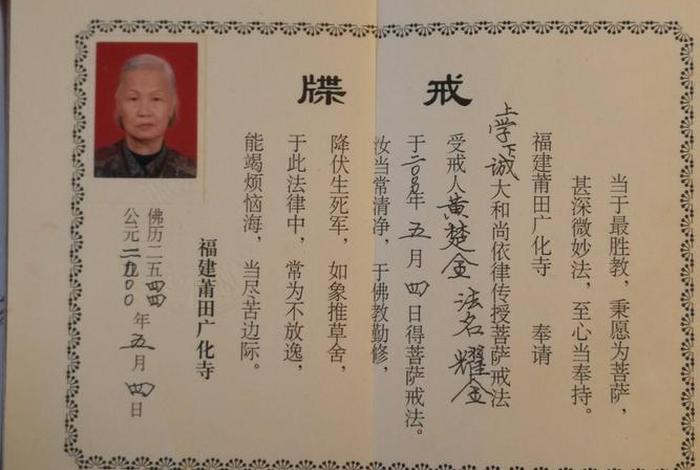 戒牒
当于最胜教，秉愿为菩萨，
甚深微妙法，至心当奉持。
福建莆田广化寺 奉请
上学下诚大和尚依律传授菩萨戒法
受戒人黄楚金 法名 耀金
于二〇〇年五月四日得菩萨戒法。
汝当常清净，于佛教勤修，
降伏生死军，如象推草舍，
于此法律中，常为不放逸，
能竭烦恼海，当尽苦边际。
福建莆田广化寺
佛历二五四四
公元二〇〇〇年五月四日